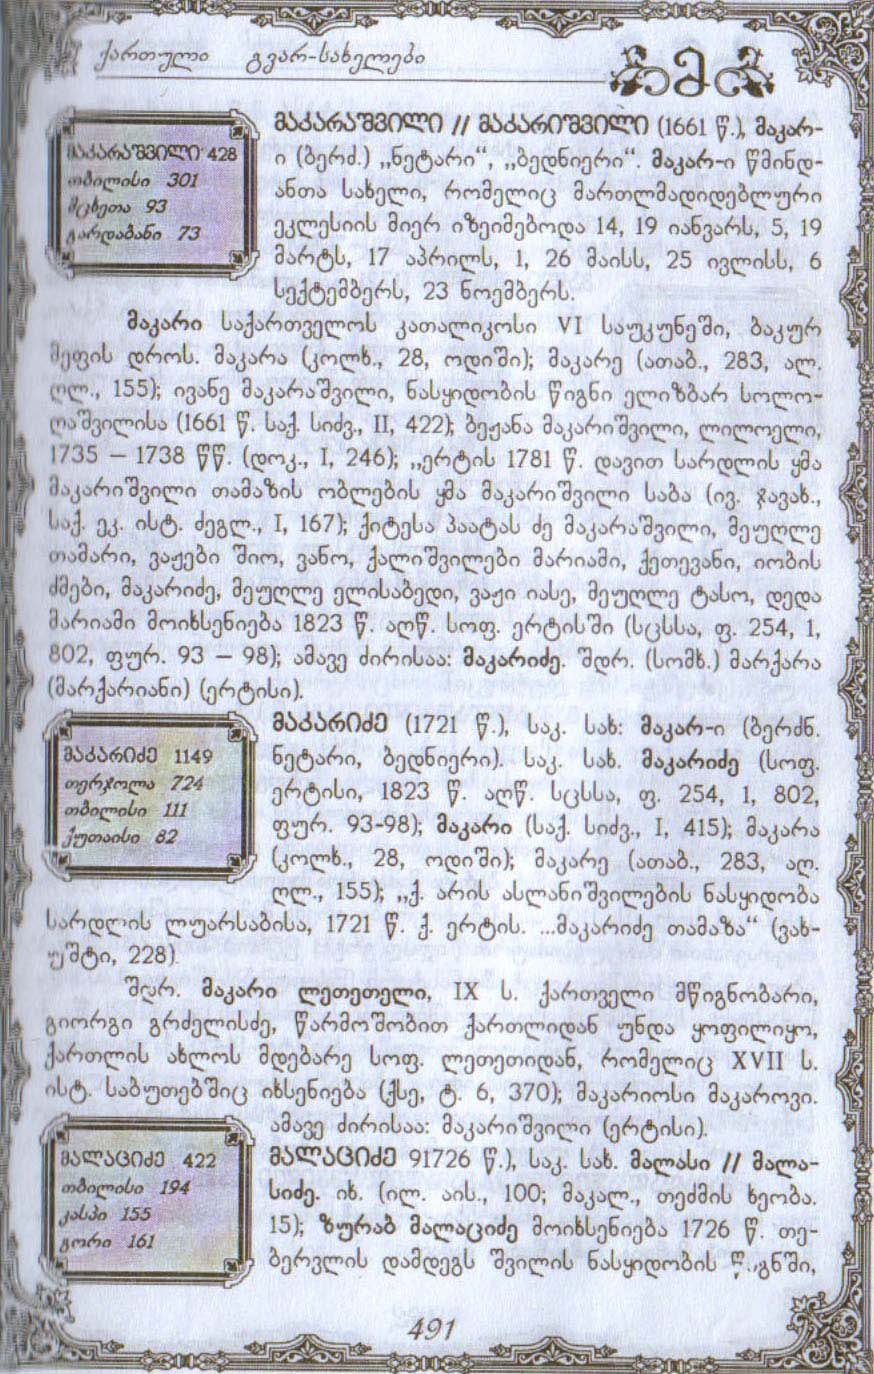 ქართული გვარ-სახელები
მ
მაკარაშვილი 428
თბილისი 301
მცხეთა 93
გარდაბანი 73
მაკარაშვილი // მაკარიშვილი (1661 წ.), მაკარ-
ი (ბერძ.) ,,ნეტარი“, ,,ბედნიერი“. მაკარ-ი წმინდ-
ანთა სახელი, რომელიც მართლმადიდებლური
ეკლესიის მიერ იზეიმებოდა 14, 19 იანვარს, 5, 19
მარტს, 17 აპრილს, 1, 26 მაისს, 25 ივლისს, 6
სექტემბერს, 23 ნოემბერს.
მაკარი საქართველოს კათალიკოსი VI საუკუნეში, ბაკურ
მეფის დროს. მაკარა (კოლხ., 28, ოდიში); მაკარე (ათაბ., 283, აღ.
ღლ., 155); ივანე მაკარაშვილი, ნასყიდობის წიგნი ელიზბარ სოლო-
ღაშვილისა (1661 წ. საქ. სიძვ., II, 422); ბეჟანა მაკარიშვილი, ლილოელი,
1735 – 1738 წწ. (დოკ., I, 246); ,,ერტის 1781 წ. დავით სარდლის ყმა
მაკარიშვილი თამაზის ობლების ყმა მაკარიშვილი საბა (ივ. ჯავახ.,
საქ. ეკ. ისტ. ძეგლ., I, 167); ქიტესა პაატას ძე მაკარაშვილი, მეუღლე
თამარი, ვაჟები შიო, ვანო, ქალიშვილები მარიამი, ქეთევანი, იობის
ძმები, მაკარიძე, მეუღლე ელისაბედი, ვაჟი იასე, მეუღლე ტასო, დედა
მარიამი მოიხსენიება 1823 წ. აღწ. სოფ. ერტისში (სცსსა, ფ. 254, 1,
802, ფურ. 93 – 98); ამავე ძირისაა: მაკარიძე. შდრ. (სომხ.) მარქარა
(მარქარიანი) (ერტისი).
მაკარიძე 1149
თერჯოლა 724
თბილისი 111
ქუთაისი 82
მაკარიძე (1721 წ.), საკ. სახ: მაკარ-ი (ბერძნ.
ნეტარი, ბედნიერი). საკ. სახ. მაკარიძე (სოფ.
ერტისი, 1823 წ. აღწ. სცსსა, ფ. 254, I, 802,
ფურ. 93-98); მაკარი (საქ. სიძვ., I, 415); მაკარა
(კოლხ., 28, ოდიში); მაკარე (ათაბ., 283, აღ.
ღლ., 155); ,,ქ. არის ასლანიშვილების ნასყიდობა
სარდლის ლუარსაბისა, 1721 წ. ქ. ერტის. ...მაკარიძე თამაზა“ (ვახ-
უშტი, 228).
შდრ. მაკარი ლეთეთელი, IX ს. ქართველი მწიგნობარი,
გიორგი გრძელისძე, წარმოშობით ქართლიდან უნდა ყოფილიყო,
ქართლის ახლოს მდებარე სოფ. ლეთეთიდან, რომელიც XVII ს.
ისტ. საბუთებშიც იხსენიება (ქსე, ტ. 6, 370); მაკარიოსი მაკაროვი.
ამავე ძირისაა: მაკარიშვილი (ერტისი).
მალაციძე 422
თბილისი 194
კასპი 155
გორი 161
მალაციძე 91726 წ.), საკ. სახ. მალასი // მალა-
სიძე. იხ. (ილ. აის., 100; მაკალ., თეძმის ხეობა.
15); ზურაბ მალაციძე მოიხსენიება 1726 წ. თე-
ბერვლის დამდეგს შვილის ნასყიდობის წიგნში,
491